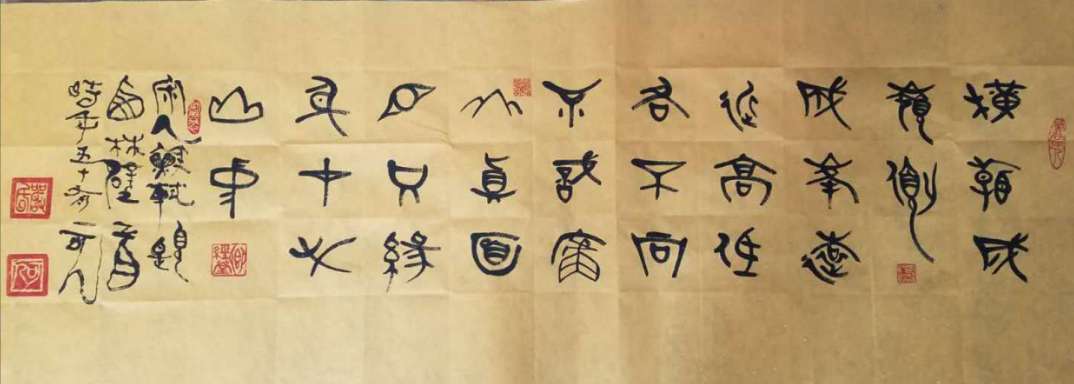 橫看成
嶺側
成峯遠
近高低
各不同
不識廬
山真面
目只緣
身在此
山中
宋人蘇軾題
西林壁
時年五十 可人